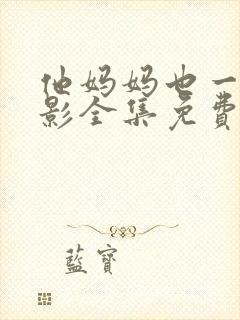 他妈妈也一
影全集免費
藍寶